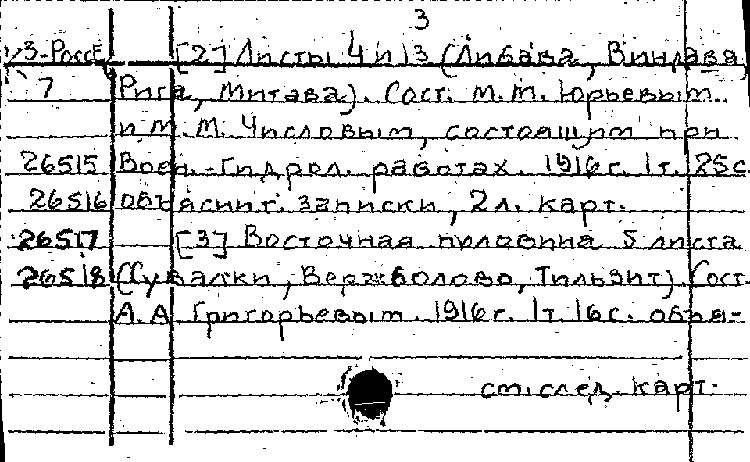 3
V3-Россе [2] Листы 4 и 13 (Либава, Виндава,
7 Рига, Митава). Сост. М.М. Юрьевым
и М.М. Числовым, состоящим при
26515 Воен.-Гидрол. работах. 1916 г. 1 т. 25 с.
26516 объяснит. записки, 2 л. карт.
26517 [3] Восточная половина 5 листа
26518 (Сувалки, Вержболово, Тильзит) Сост.
А.А. Григорьевым. 1916 г. 1 т. 16 с. объя-
см. след. карт.